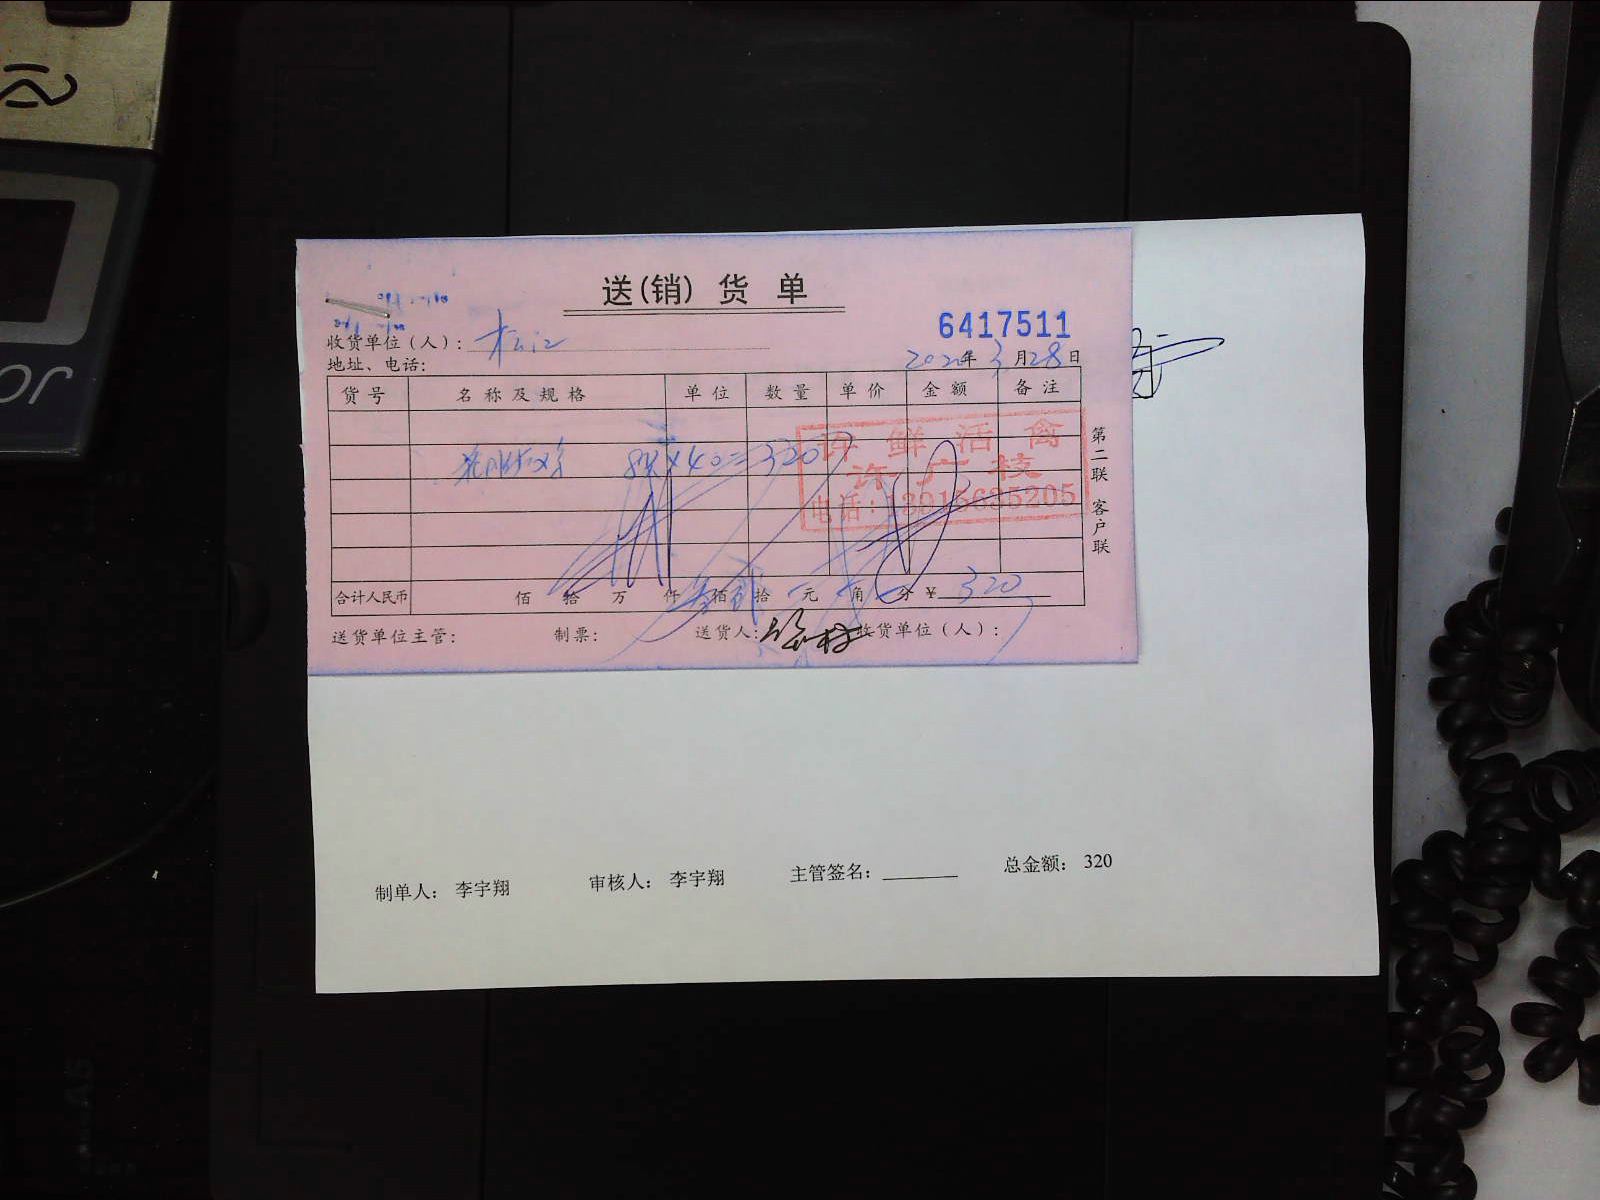 送(销)货单
6417511
收货单位(人):松江
地址、电话:
2022年3月28日
货号 名称及规格 单位 数量 单价 金额 备注
许鲜活禽
许广枝
电话:13916635205
8只×40=320
第二联 客户联
合计人民币 佰 拾 万 仟 佰 拾 元 角 分 ¥ 320
送货单位主管: 制票: 送货人: 收货单位(人):
制单人: 李宇翔 审核人: 李宇翔 主管签名: 总金额: 320